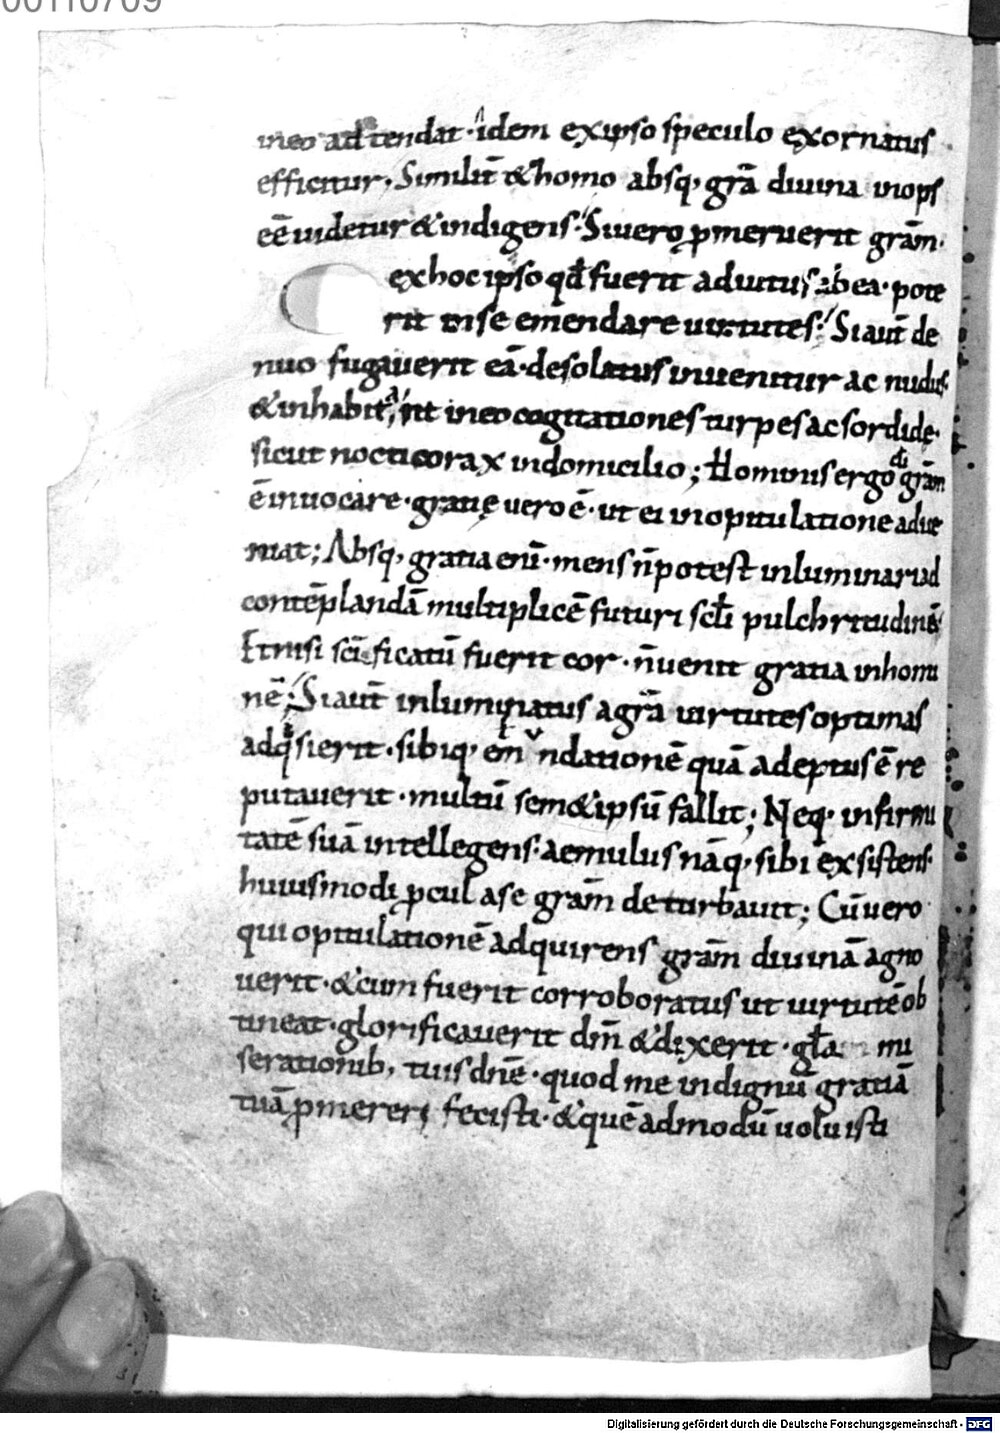 00110709
ineo adtendat · idem ex ipso speculo exornatus ·
efficitur. Similit̄ & homo absq; grā diuina inops
eē uidetur & indigens. Si uero ꝑmeruerit grām.
ex hoc ipso qđ fuerit adiutus ab ea. pote
rit in se emendare uirtutes. Si aut̄ de
nuo fugauerit eā. desolatus inuenitur ac nudus.
& inhabitant in eo cogitationes turpes ac sordidę.
sicut nocticorax in domicilio; Hominis ergo dī grām
ē inuocare. gratię uero ē. ut ei in opitulatione adue
niat; Absq; gratia enī. mens n̄ potest inluminari ad
contēplandā multiplicē futuri scłi pulchritudinē
Et nisi scīficatū fuerit cor. n̄ uenit gratia in homi
nē. Si aut̄ inluminatus a grā uirtutes optimas
adqsierit. sibiq; emundationē quā adeptus ē re
putauerit. multū sem&ipsū fallit; Neq; infirmi
tatē suā intellegens. aemulus nāq; sibi exsistens.
huiusmodi ꝓcul a se grām deturbauit; Cū uero
qui opitulationē adquirens grām diuinā agno
uerit. & cum fuerit corroboratus ut uirtutē ob
tineat. glorificauerit dm̄ & dixerit. gła mi
serationib; tuis dnē. quod me indignū gratiā
tuā ꝑmereri fecisti. & quē admodū uoluisti
Digitalisierung gefördert durch die Deutsche Forschungsgemeinschaft - DFG